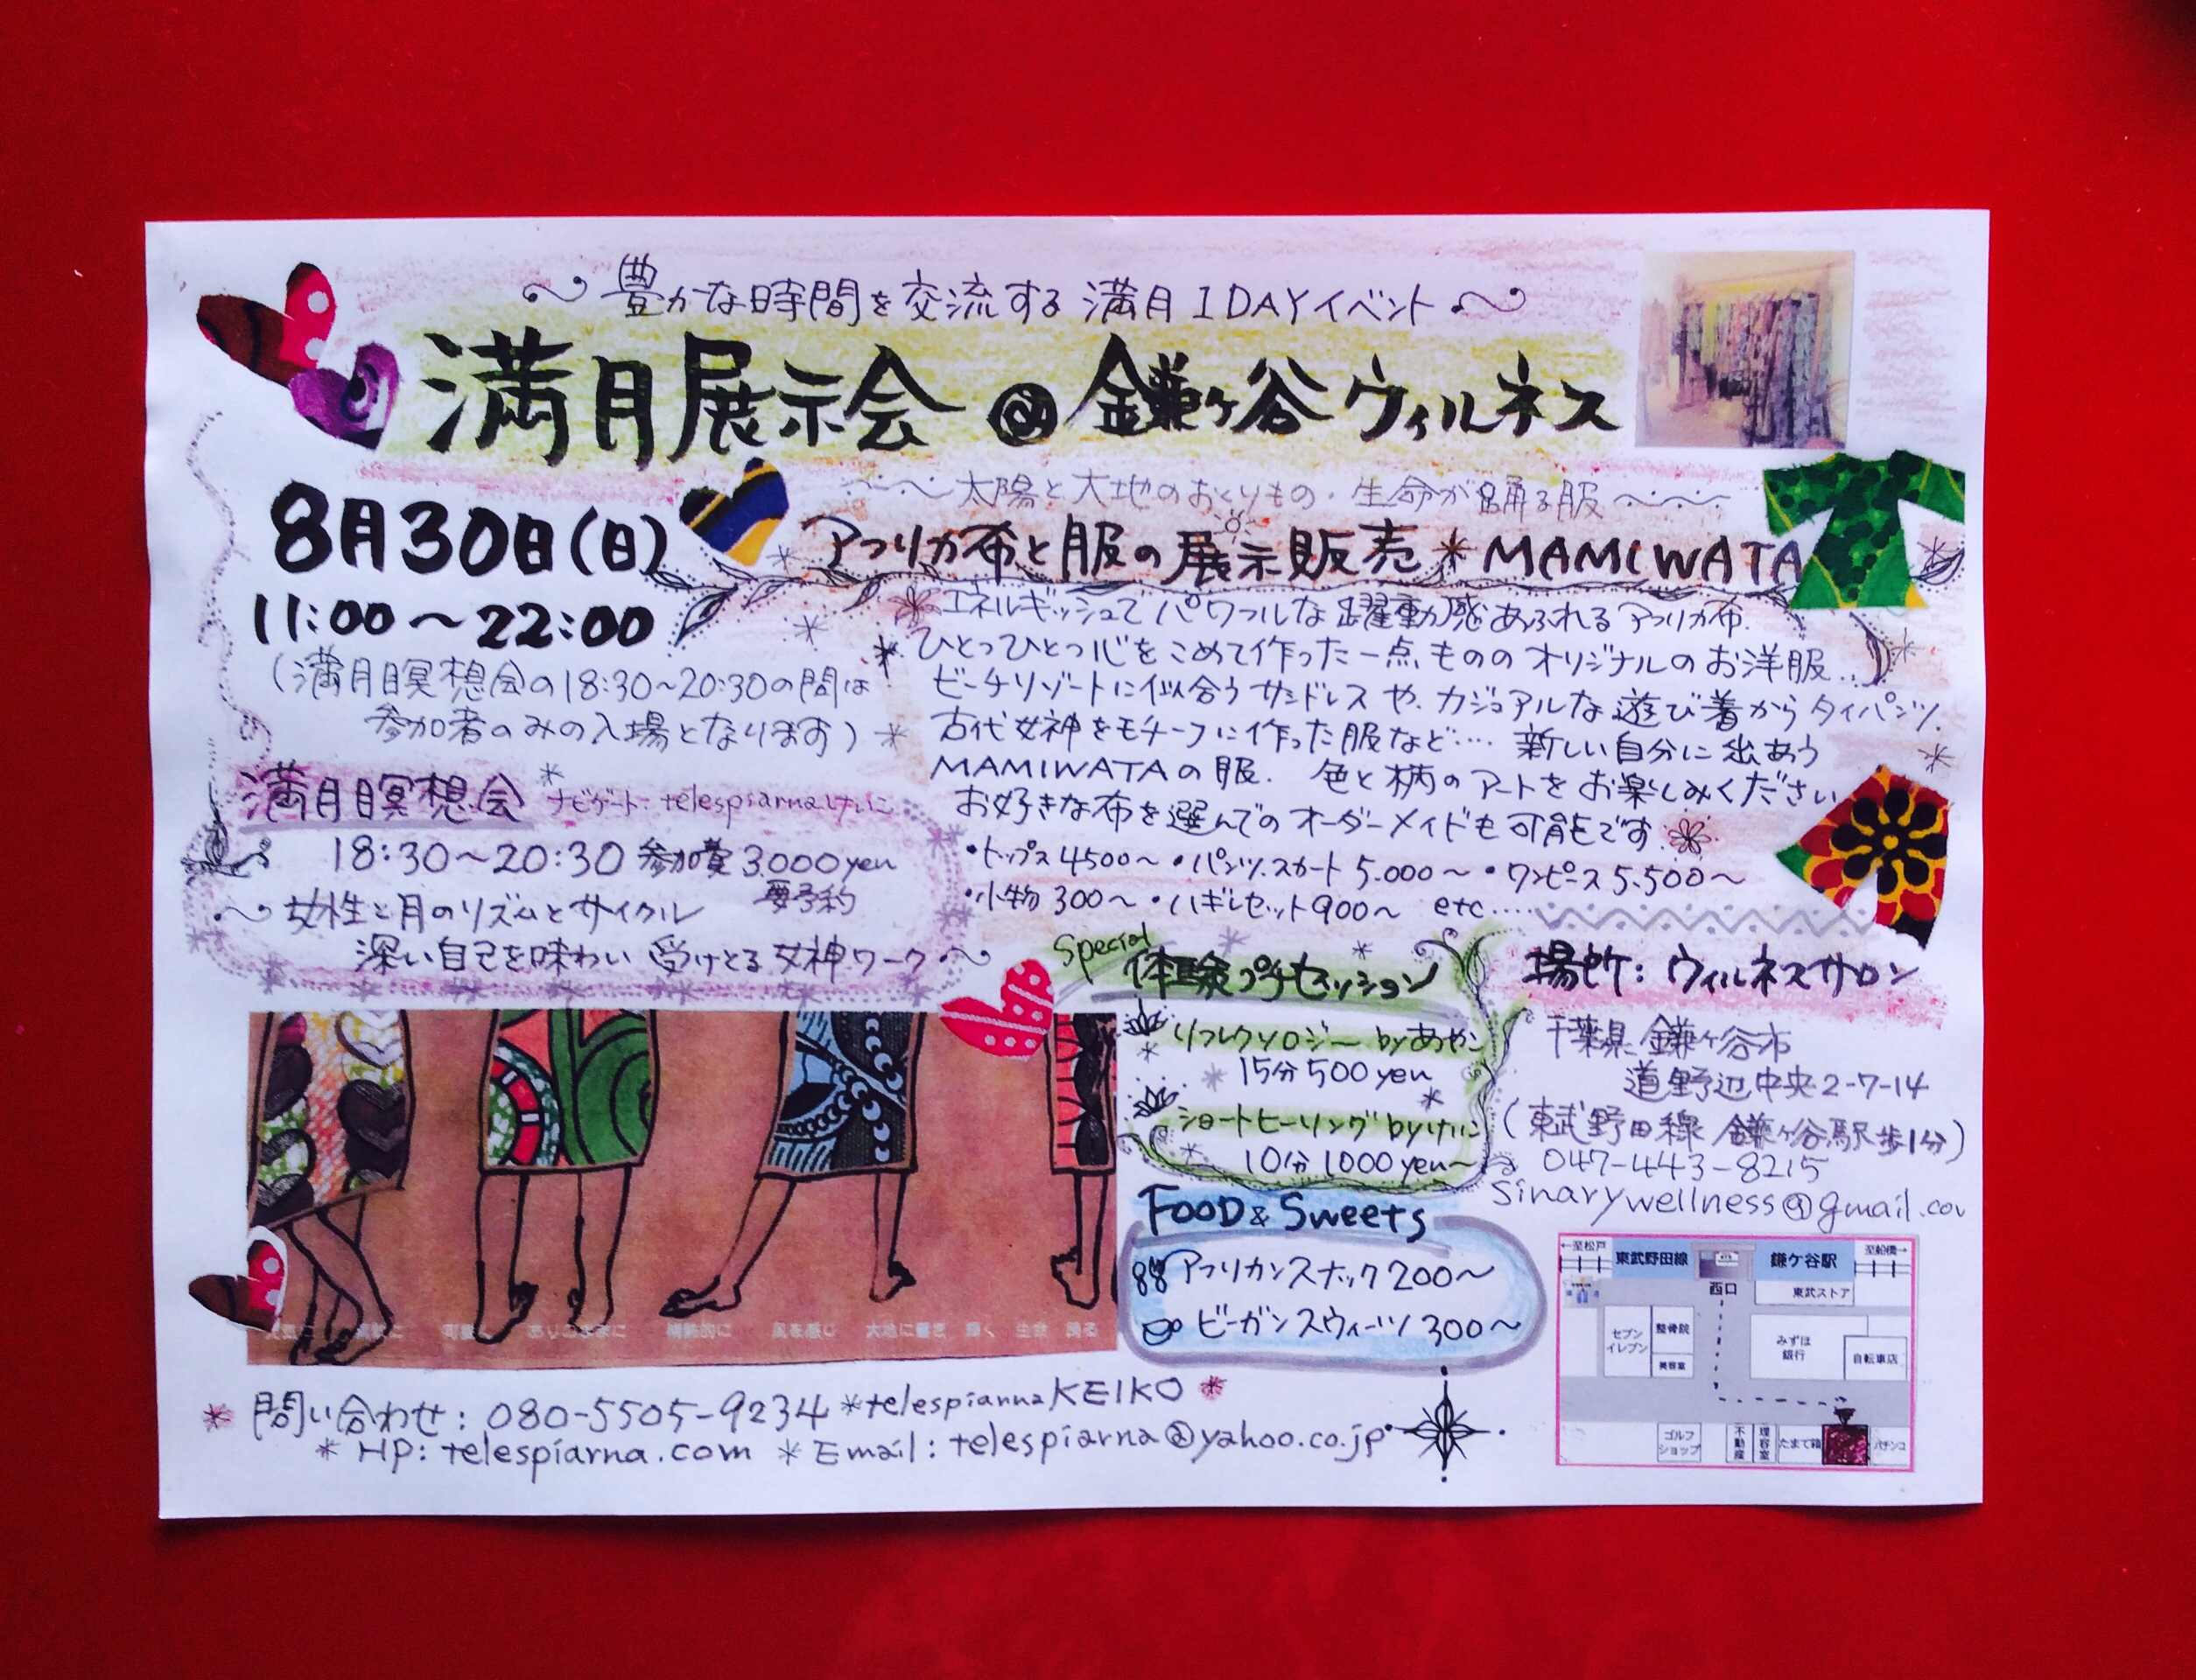 ～豊かな時間を交流する満月1DAYイベント～
満月展示会@鎌ヶ谷ウィルネス
8月30日(日)
11:00～22:00
(満月瞑想会の18:30～20:30の間は
参加者のみの入場となります)
～太陽と大地のおくりもの・生命が踊る服～
アフリカ布と服の展示販売*MAMIWATA
エネルギッシュでパワフルな躍動感あふれるアフリカ布.
ひとつひとつ心をこめて作った一点もののオリジナルのお洋服...
ビーチリゾートに似合うサンドレスや、カジュアルな遊び着からタイパンツ.
古代女神をモチーフに作った服など.... 新しい自分に出あう
MAMIWATAの服. 色と柄のアートをお楽しみください
お好きな布を選んでのオーダーメイドも可能です.
・トップス4500～・パンツ.スカート5.000～・ワンピース5.500～
・小物300～・ハギレセット900～ etc....
満月瞑想会 *ナビゲート-telespiarnaけいこ
18:30～20:30 参加費3.000yen
要予約
～女性と月のリズムとサイクル
深い自己を味わい受けとる女神ワーク～
Special
体験プチセッション
リフレクソロジー byあやこ
15分500yen
ショートヒーリング byけいこ
10分1000yen～
FOOD & Sweets
アフリカンスナック200～
ビーガンスウィーツ300～
場所:ウィルネスサロン
千葉県鎌ヶ谷市
道野辺中央2-7-14
(東武野田線 鎌ヶ谷駅歩1分)
047-443-8215
sinarywellness@gmail.com
←至松戸 東武野田線 鎌ケ谷駅 至船橋→
西口
東武ストア
セブンイレブン
整骨院
美容室
みずほ銀行
自転車店
ゴルフショップ
不動産
理容室
たまて箱
パチンコ
可愛 ありのままに 情熱的に 風を感じ 大地に響き 輝く 生命 踊る
*問い合わせ:080-5505-9234*telespiarnaKEIKO*
*HP:telespiarna.com *Email:telespiarna@yahoo.co.jp